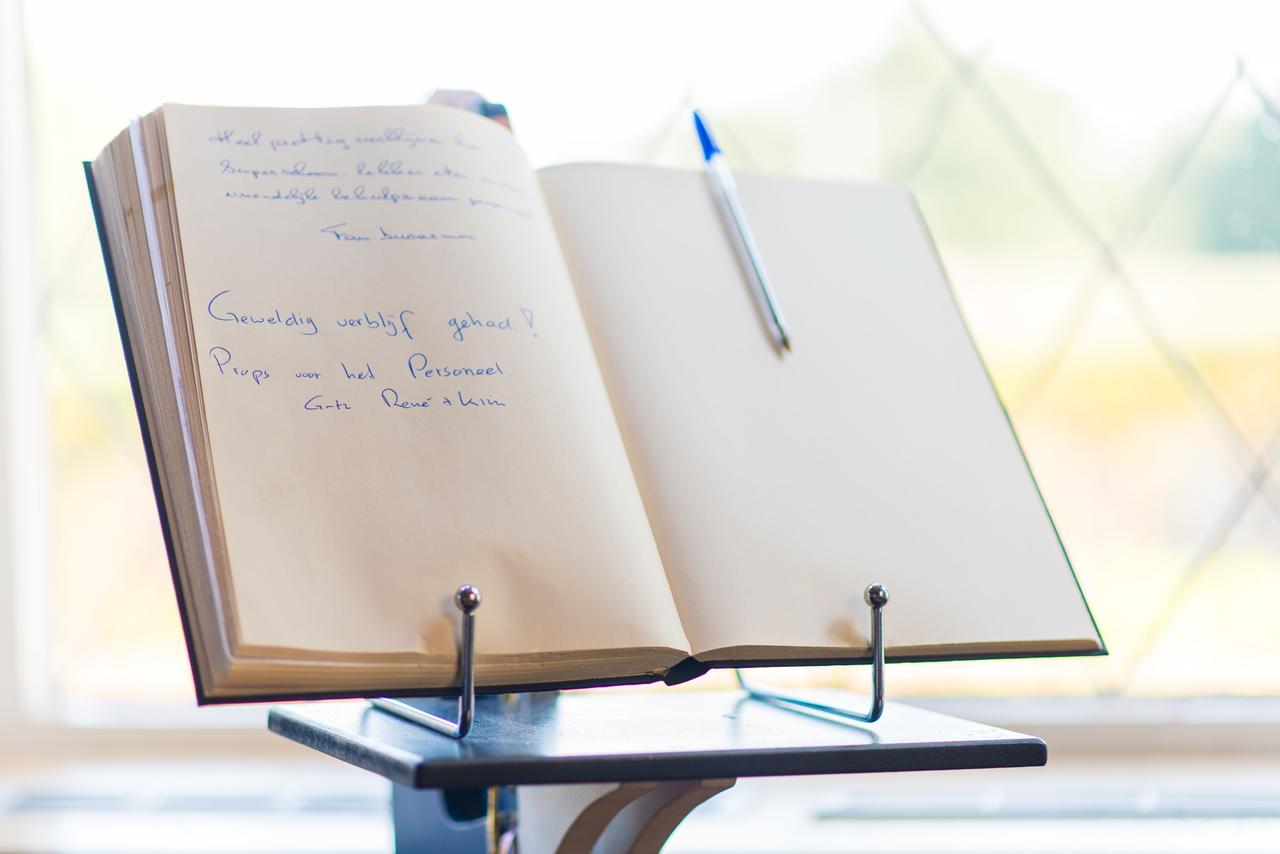 Heel prettig verblijven
Superschoon. lekker eten
vriendelijk behulpzaam
Fam.
Geweldig verblijf gehad!
Props voor het Personeel.
Grtz René + Kim